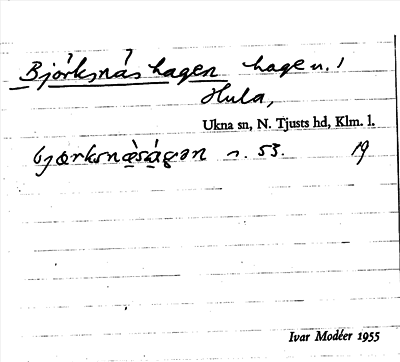 Björksnäshagen hage u. !
Hula,
Ukna sn, N. Tjusts hd, Klm. l.
bjørksnæ̀ságən n. 53. 19
Ivar Modéer 1955